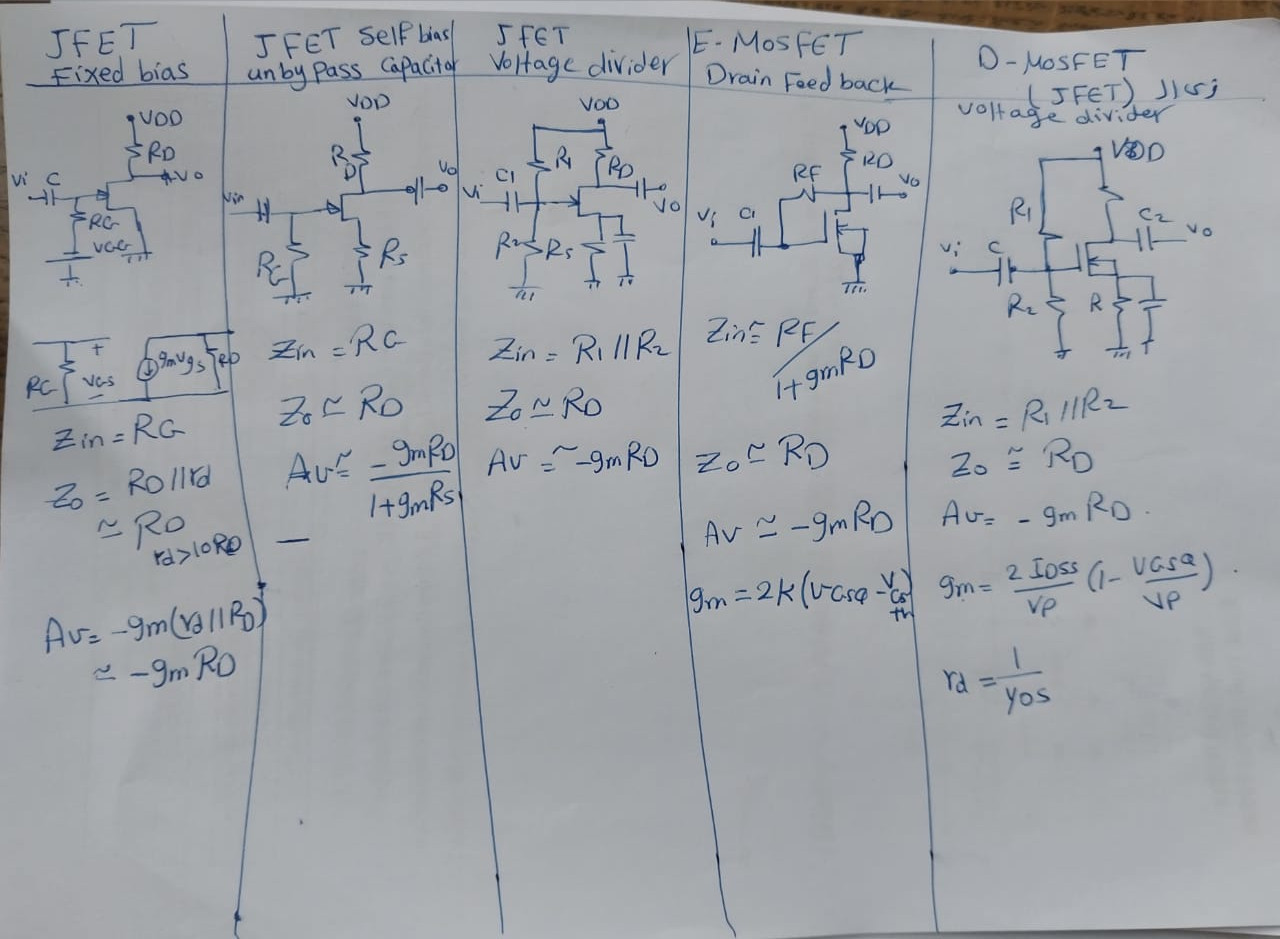 JFET
Fixed bias
VDD
RD
Vi
C
Vo
RG
VGG
RG
+
VGS
-
gmVgs
RD
Zin = RG
Zo = RD//rd
≃ RD
rd>10RD
Av= -gm(rd//RD)
≃ -gmRD
JFET Self bias
unbypass Capacitor
VDD
RD
Vo
Vin
RG
Rs
Zin = RG
Zo ≃ RD
Av≃ -gmRD
1+gmRs
JFET
Voltage divider
VDD
R1
RD
C1
Vi
Vo
R2
Rs
Zin = R1//R2
Zo ≃ RD
Av ≃ -gmRD
E-MOSFET
Drain Feedback
VDD
RD
RF
Vo
Vi
C1
Zin≅ RF/
1+gmRD
Zo ≃ RD
Av ≃ -gmRD
gm = 2k(VGSQ - VGS
th)
D-MOSFET
(JFET) زي ال
voltage divider
VDD
R1
C2
Vo
Vi
C
R2
R
Zin = R1//R2
Zo ≅ RD
Av= - gmRD.
gm= 2IDSS (1- VGSQ).
VP VP
rd = 1
yos